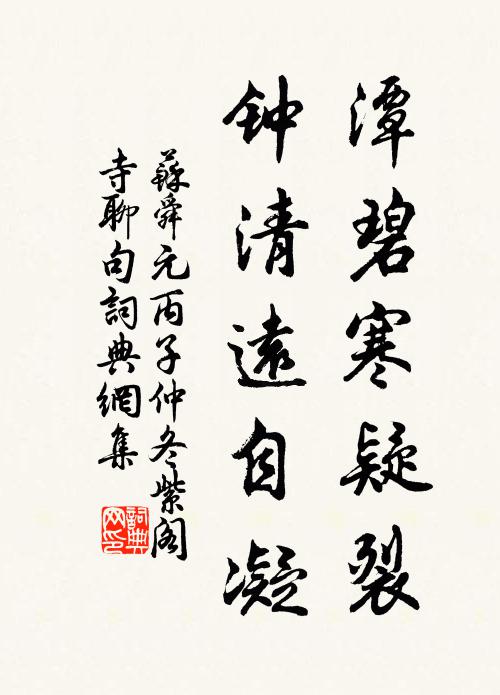 潭碧寒疑裂
钟清遠自凝
蘇舜元丙子仲冬紫阁
寺聊句詞典網集
詞典网印